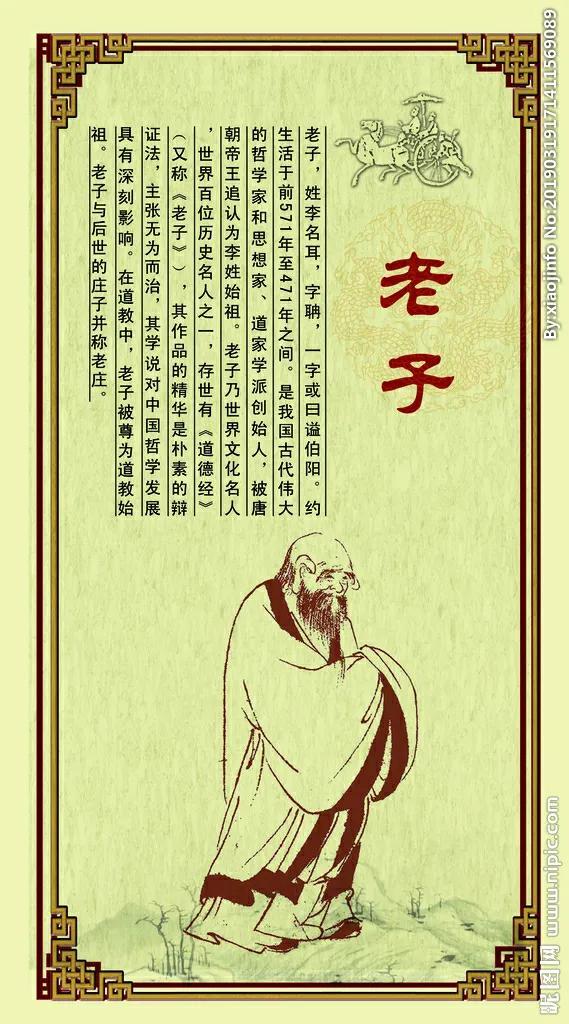 老子
老子，姓李名耳，字聃，一字或曰谥伯阳。约
生活于前571年至471年之间。是我国古代伟大
的哲学家和思想家、道家学派创始人，被唐
朝帝王追认为李姓始祖。老子乃世界文化名人
，世界百位历史名人之一，存世有《道德经》
（又称《老子》），其作品的精华是朴素的辩
证法，主张无为而治，其学说对中国哲学发展
具有深刻影响。在道教中，老子被尊为道教始
祖。老子与后世的庄子并称老庄。
By:xiaojinfo No:20190319171411569089
昵图网 www.nipic.com